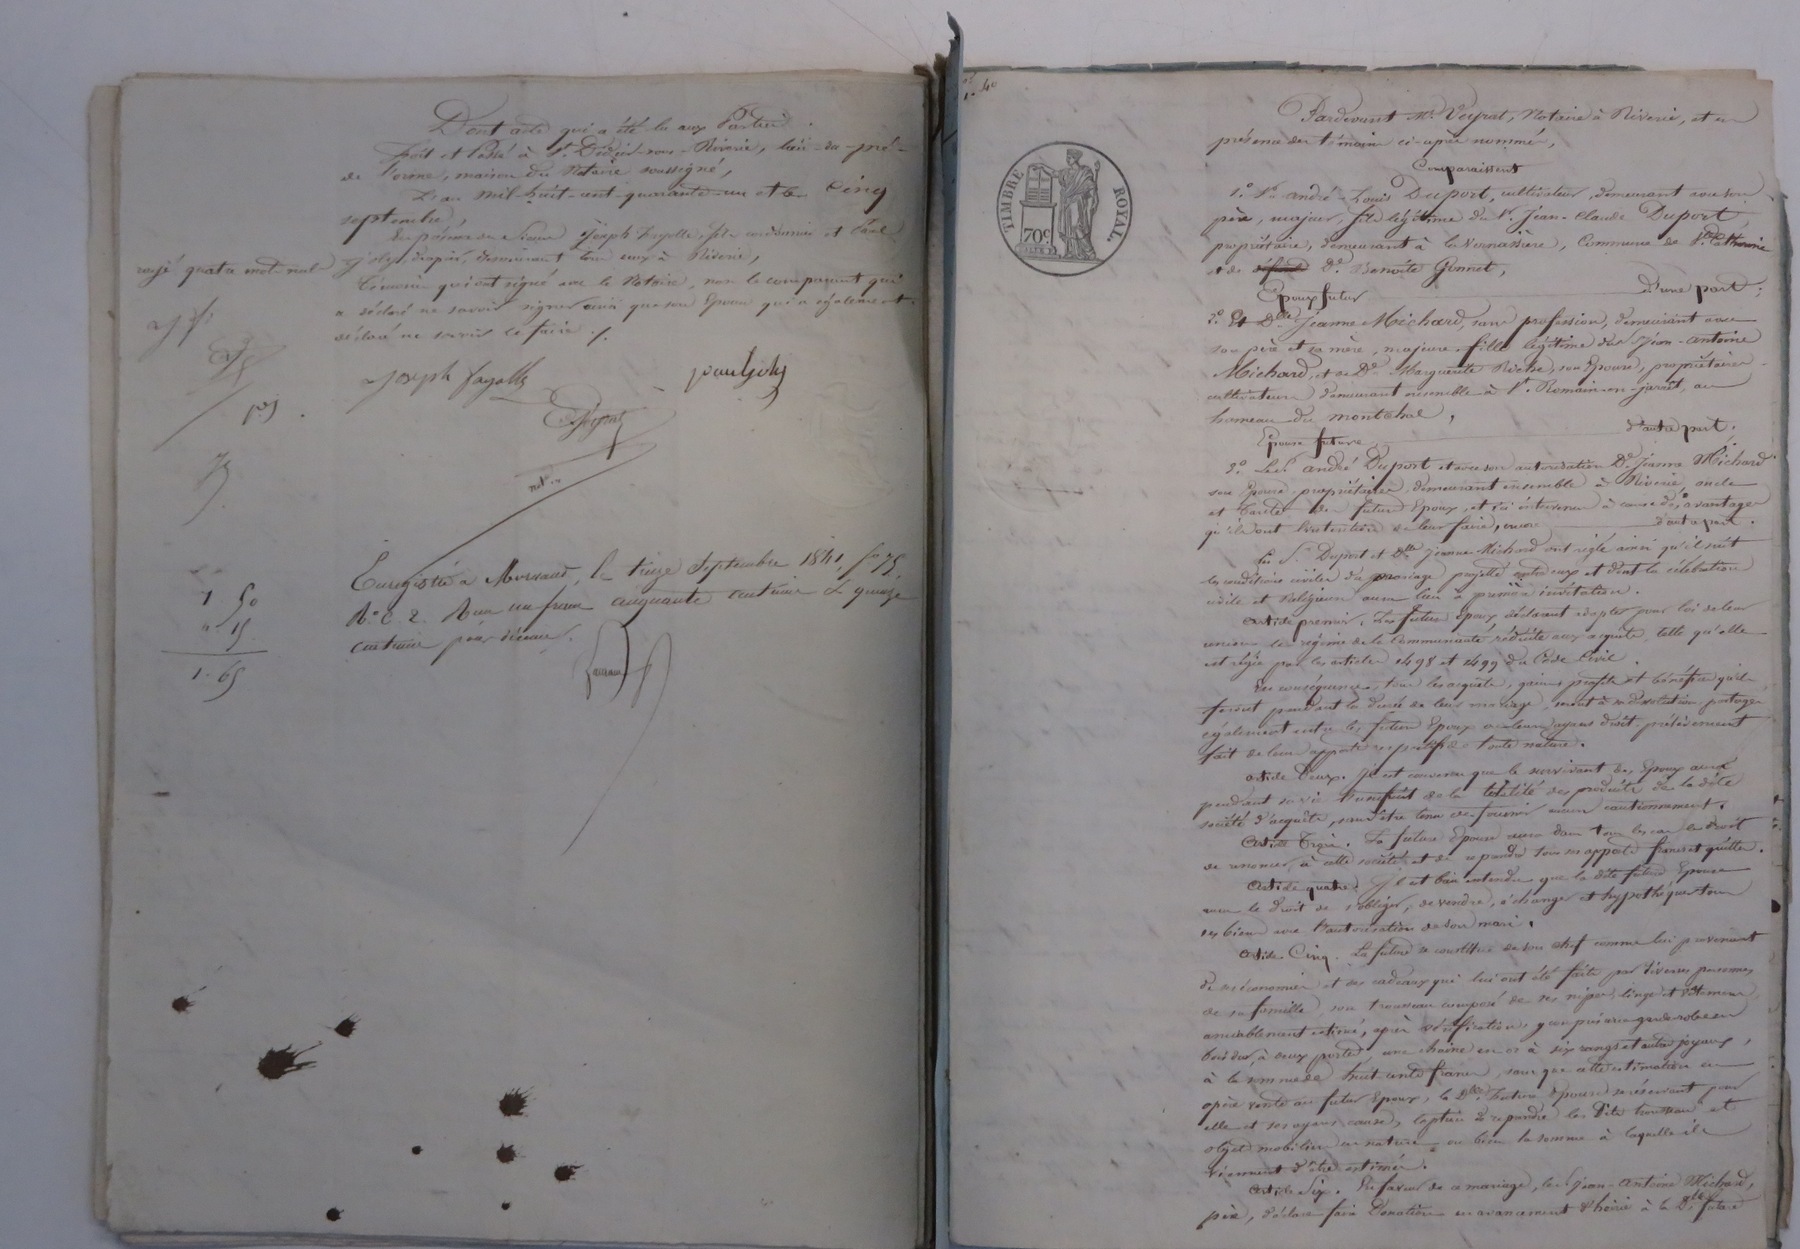 Dont acte qui a été lu aux Parties.
Fait et Passé à St. Didier-sous-Riverie, lieu-du-pré-
de l'orme, maison du Notaire soussigné,
L'an Mil-huit-cent-quarante-un et le Cinq
septembre,
En présence de Sieurs Joseph Fayolle, fils cordonnier et Paul
demeurant tous deux à Riverie,
Témoins qui ont signé avec le Notaire, non le comparant qui
a déclaré ne savoir signer ainsi que son Epouse qui a également
déclaré ne savoir le faire ./.
rayé quatre mots nuls
Joseph fayolle
not.re
1 50
" 15
1. 65
Enregistré à Mornant, le treize Septembre 1841, fo 75,
Ro. C. 2. Reçu un franc cinquante centimes & quinze
centimes pour décime.
TIMBRE ROYAL.
70c.
Pardevant Me. Veyrat, Notaire à Riverie, et en
présence des témoins ci-après nommés,
Comparaissent
1.o Sr. andré-Louis Duport, cultivateur, demeurant avec son
père, majeur, fils légitime de Sr. Jean-Claude Duport,
propriétaire, demeurant à la Vernassière, Commune de Ste. Catherine
et de De. Benoîte Gonnet,
Epoux futur d'une part;
2.o Et Dlle. Jeanne Michard, sans profession, demeurant avec
son père et sa mère, majeure, fille légitime de Sr Jean-Antoine
Michard, et de De. Marguerite Roche, son Epouse, propriétaires-
cultivateurs demeurant ensemble à St. Romain-en-jarrêt, au
hameau du montchal,
Epouse future d'autre part.
3.o Le Sr. andré Duport et avec son autorisation De. Jeanne Michard
son Epouse, propriétaires, demeurant ensemble à Riverie, oncle
et tante des futurs Epoux, et ici intervenus à cause des avantages
qu'ils ont l'intention de leur faire, encore d'autre part.
Les Sr. Duport et Dlle Jeanne Michard ont réglé ainsi qu'il suit
les conditions civiles du mariage projetté entre eux et dont la célébration
civile et Religieuse aura lieu à première invitation.
Article premier. Les futurs Epoux déclarent adopter pour loi de leur
union le régime de la Communauté réduite aux acquêts, telle qu'elle
est régie par les articles 1498 et 1499 du Code Civil.
En conséquence, tous les acquêts, gains, profits et bénéfices qu'ils
feront pendant la durée de leur mariage, seront à sa dissolution partagés
également entre les futurs Epoux ou leurs ayans droit, prélèvement
fait de leurs apports respectifs de toute nature.
Article Deux. Il est convenu que le survivant des Epoux aura
pendant sa vie l'usufruit de la totalité des produits de la dite
société d'acquêts, sans être tenu de fournir aucun cautionnement.
Article Trois. La future Epouse aura dans tous les cas le droit
de renoncer à cette société et de reprendre tous ses apports francs et quittes.
Article quatre. Il est bien entendu que la dite future Epouse
aura le droit de s'obliger, de vendre, échanger et hypothéquer tous
ses biens avec l'autorisation de son mari.
Article Cinq. La future se constitue de son chef comme lui provenant
de ses économies et des cadeaux qui lui ont été faits par diverses personnes
de sa famille, son trousseau composé de ses nippes, linges et vêtemens
amiablement estimé, après vérification, y compris une garderobe en
bois dur, à deux portes, une chaîne en or à six rangs et autres joyaux,
à la somme de huit-cents francs, sans que cette estimation en
opère vente au futur Epoux, la Dlle. future Epouse se réservant pour
elle et ses ayans cause, l'option de reprendre les dits trousseau et
objets mobiliers en nature, ou bien la somme à laquelle ils
viennent d'être estimés.
Article Six. En faveur de ce mariage, le Sr Jean-Antoine Michard,
père, déclare faire Donation en avancement d'hoirie à la Dlle. future